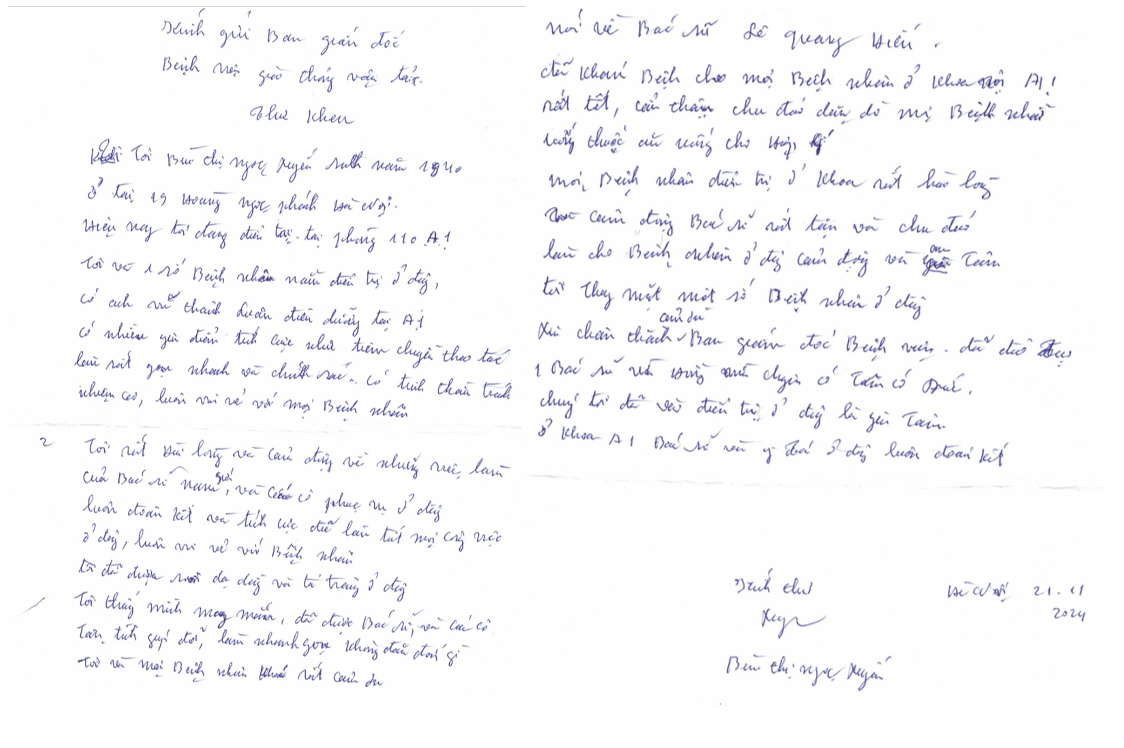 Kính gửi Ban giám đốc
Bệnh viện giao thông vận tải.
Thư khen
Tôi Bùi thị ngọc Xuyến sinh năm 1940
ở tại 19 Hoàng ngọc phách Hà Nội.
Hiện nay tôi đang điều trị tại phòng 110 A1
Tôi và 1 số Bệnh nhân nằm điều trị ở đây,
có anh vũ thành Luân điều dưỡng tại A1
có nhiều ưu điểm tích cực như tiêm chuyền thao tác
làm rất gọn nhanh và chính xác. có tinh thần trách
nhiệm cao, luôn vui vẻ với mọi Bệnh nhân
2 Tôi rất hài lòng và cảm động về những việc làm
của Bác sĩ nam giới, và các cô phục vụ ở đây
luôn đoàn kết và tích cực để làm tốt mọi công việc
ở đây, luôn vui vẻ với Bệnh nhân
tôi đã được soi dạ dày và tá tràng ở đây
Tôi thấy mình may mắn, đã được Bác sĩ, và các cô
tận tình giúp đỡ, làm nhanh gọn không đau đớn gì
Tôi và mọi Bệnh nhân rất cảm ơn
nói về Bác sĩ Lê quang Hiếu.
đã khám Bệnh cho mọi Bệnh nhân ở khoa nội A1
rất tốt, cẩn thận chu đáo dặn dò mọi Bệnh nhân
uống thuốc ăn uống cho
mọi Bệnh nhân điều trị ở khoa rất hài lòng
cảm động Bác sĩ rất tận và chu đáo
làm cho Bệnh nhân ở đây cảm động và an Tâm
tôi thay mặt một số Bệnh nhân ở đây
xin chân thành cảm ơn Ban giám đốc Bệnh viện. đã
1 Bác sĩ có Tâm có Đức.
chúng tôi đã vào điều trị ở đây là yên Tâm.
ở khoa A1 Bác sĩ và y tá ở đây luôn đoàn kết
Kính thư
Hà Nội 21.11
2024
Bùi thị ngọc Xuyến